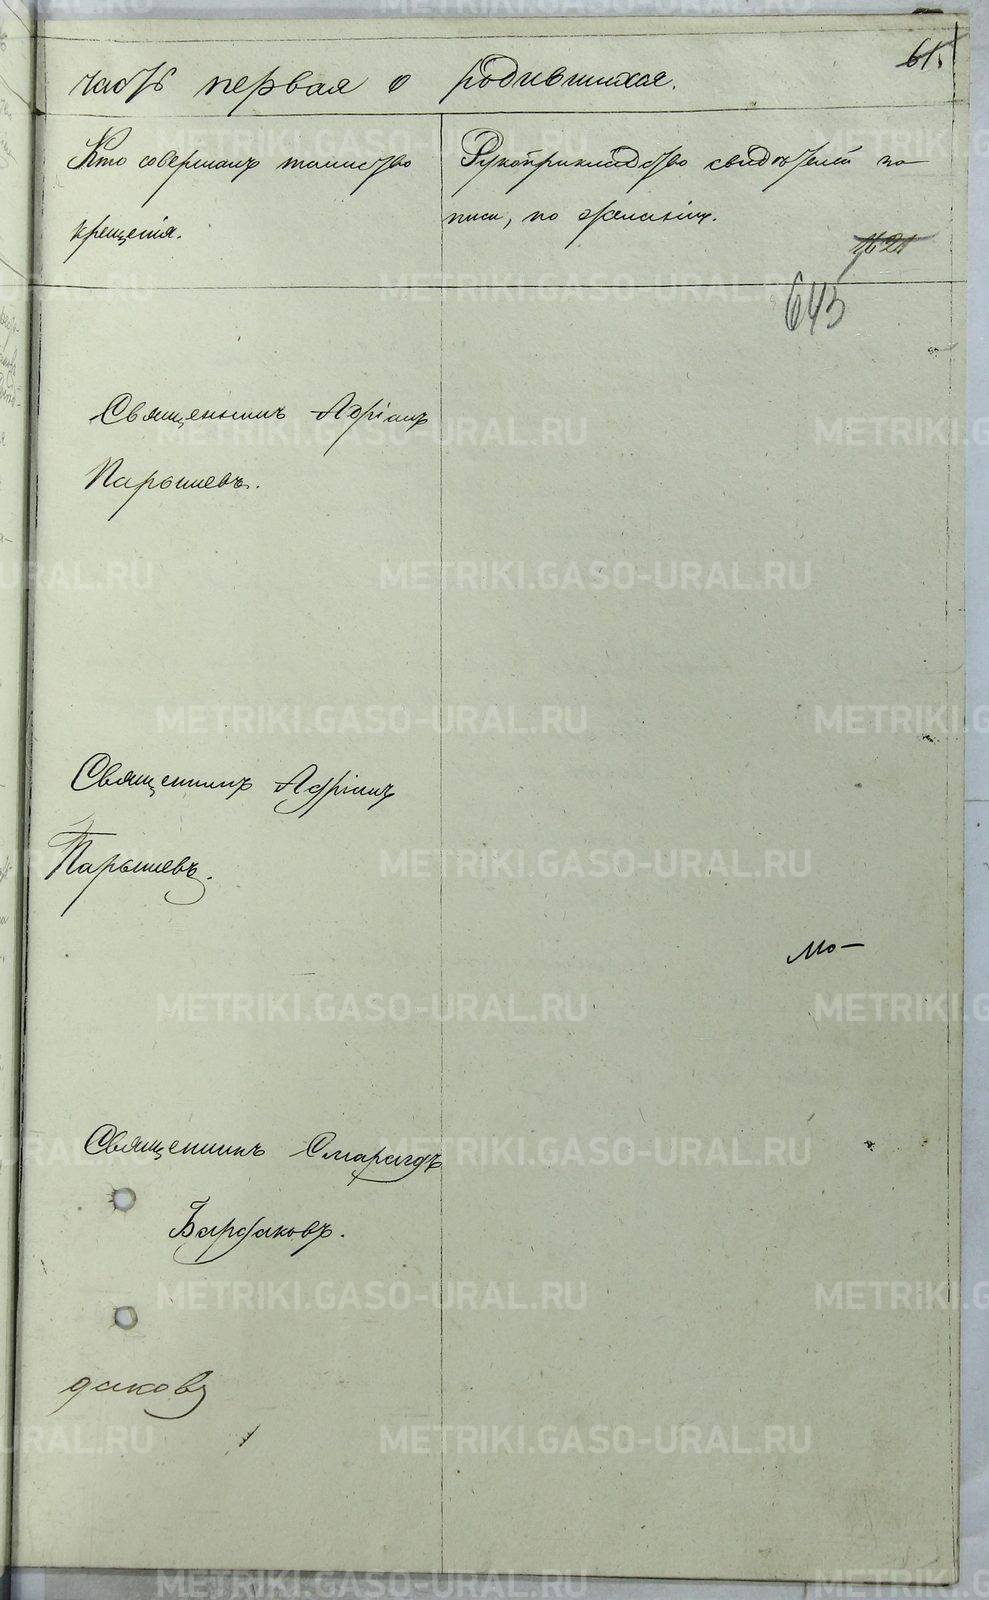 61.
часть первая о родившихся.
Кто совершалъ таинство
крещенія.
Рукоприкладство свидѣтелей за-
писи, по желанію.
643
Священникъ Адріанъ
Парышевъ.
Священникъ Адріанъ
Парышевъ.
Мо-
Священникъ Смарагдъ
Бардаковъ.
даковъ
METRIKI.GASO-URAL.RU